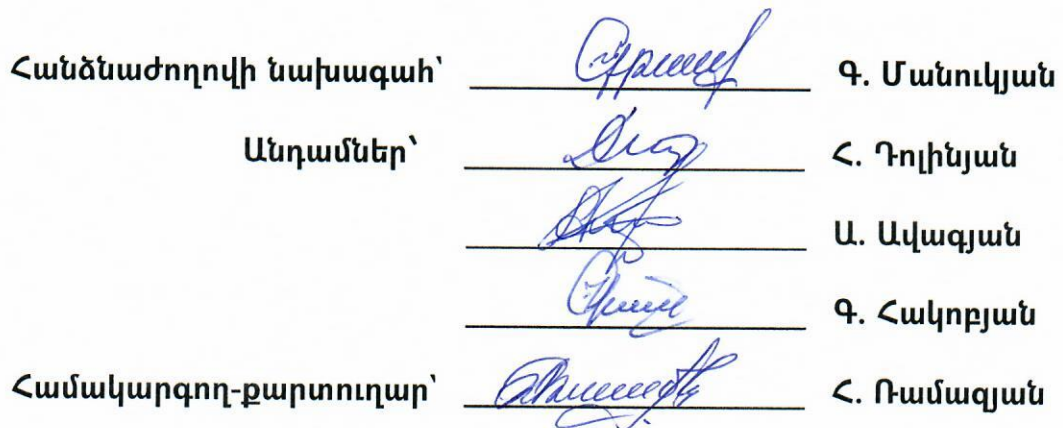 Հանձնաժողովի նախագահ՝ Գ. Մանուկյան
Անդամներ՝ Հ. Դոլինյան
Ա. Ավագյան
Գ. Հակոբյան
Համակարգող-քարտուղար՝ Հ. Ռամազյան